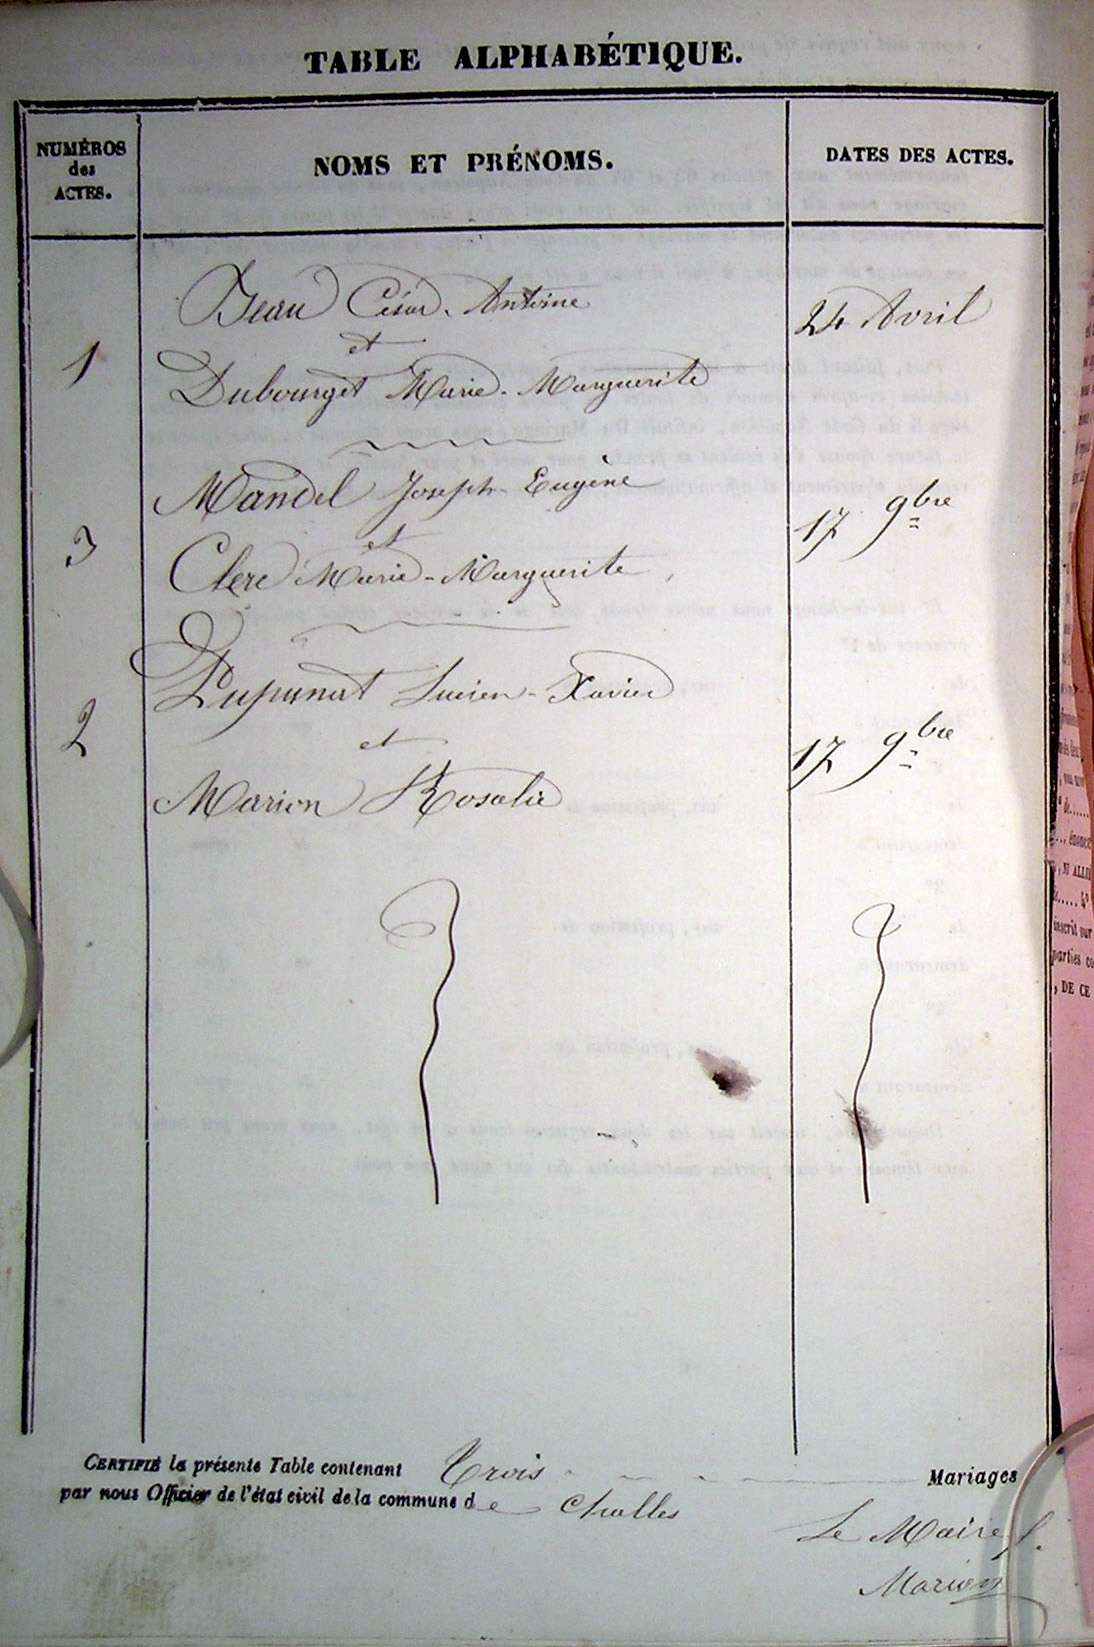 TABLE ALPHABÉTIQUE.
NUMÉROS
des
ACTES.
NOMS ET PRÉNOMS.
DATES DES ACTES.
Jeau César-Antoine
24 Avril
et
1
Dubourget Marie-Marguerite
Mandel Joseph-Eugène
17 9bre
et
3
Clerc Marie-Marguerite
Lucien-Xavier
2
et
17 9bre
Marion Rosalie
CERTIFIÉ la présente Table contenant Trois Mariages
par nous Officier de l'état civil de la commune de Challes
Le Maire
Marion